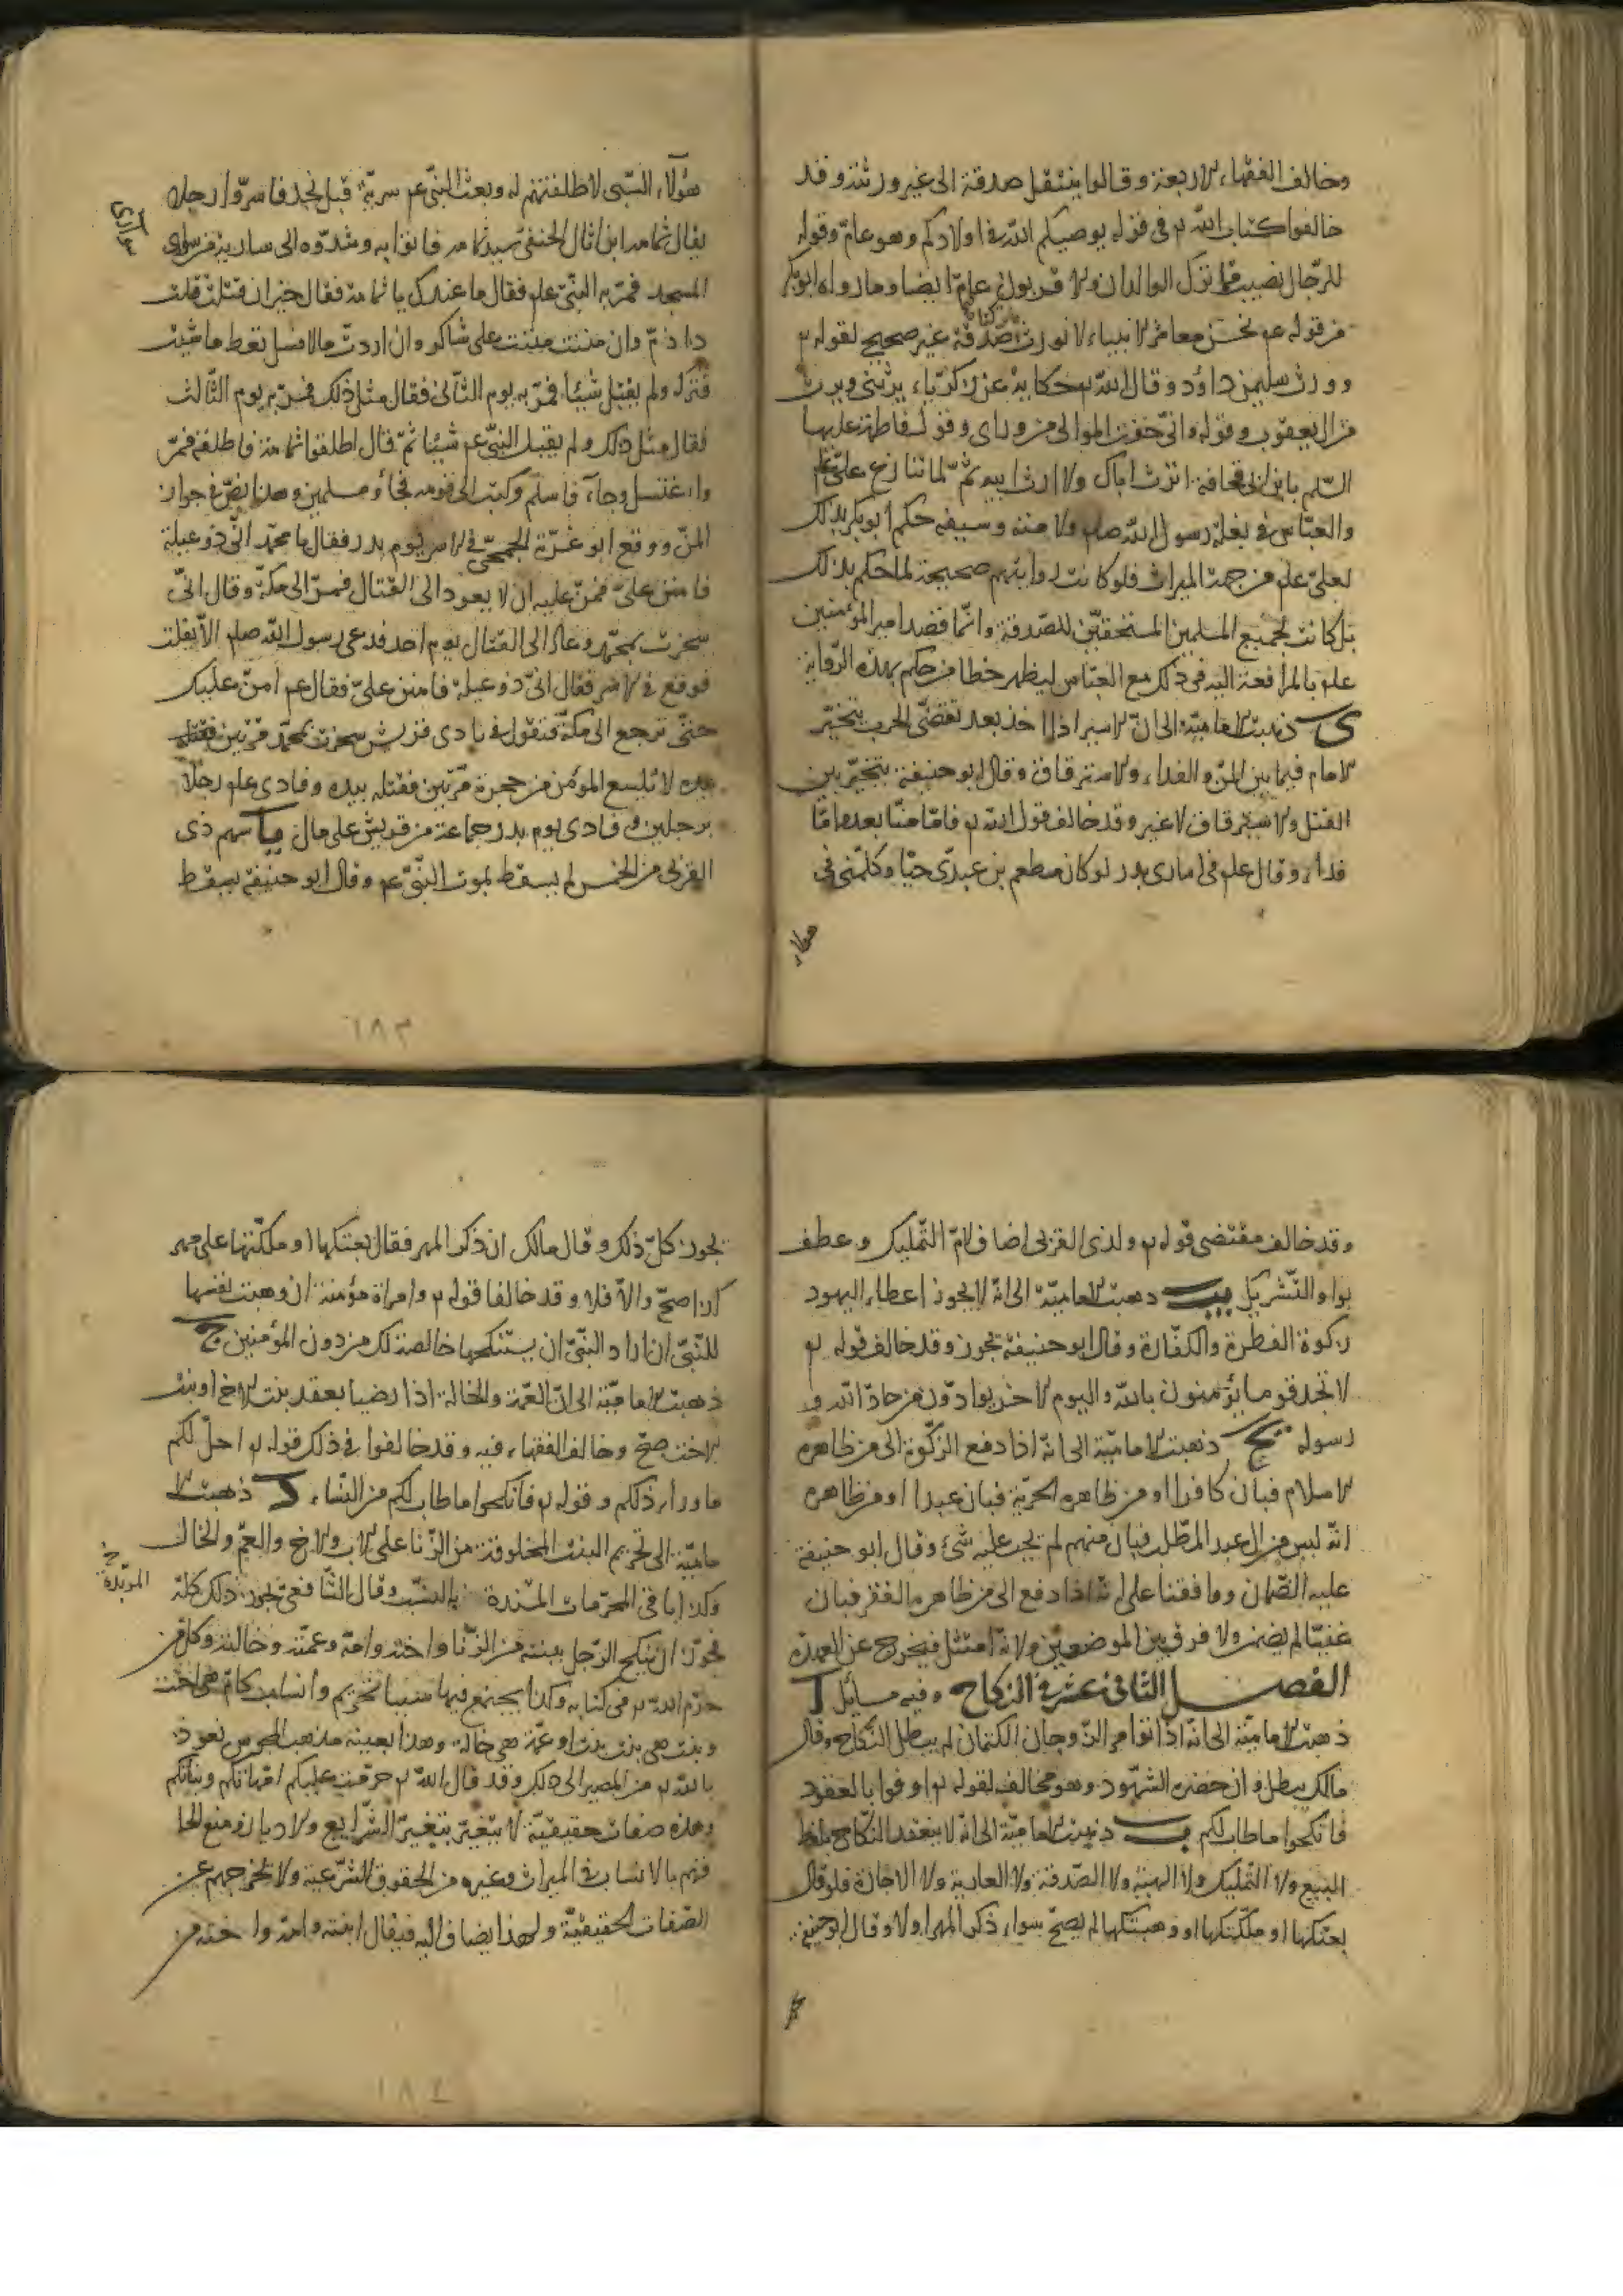 وخالف الفقهاء الاربعة وقالوا ينتقل صدقة الى غير ورثته وقد
خالفوا كتاب الله تع فى قوله يوصيكم الله فى اولادكم وهو عام وقوله
للرجال نصيب مما ترك الوالدان والاقربون عام ايضا وما رواه ابوبكر
من قوله عم نحن معاشر الانبياء لا نورث ما تركناه صدقة غير صحيح لقوله تع
وورث سليمن داود وقال الله تع حكاية عن زكرياء يرثنى ويرث
من ال يعقوب وقوله وانى خفت الموالى من وراى وقول فاطمة عليها
السلم يا بن ابى قحافة اترث اباك ولا ارث ابيه ثم لما تنازع على علم
والعباس فى بغلة رسول الله صلم وسيفه حكم ابوبكر بذلك
لعلى علم من جهة الميراث فلو كانت روايتهم صحيحة لما حكم بذلك
بل كانت لجميع المسلمين المستحقين للصدقة وانما قصد امير المؤمنين
علم بالمرافعة اليه فى ذلك مع العباس ليظهر خطا من حكم بهذه الرواية
ى ذهبت الامامية الى ان الاسير اذا اخذ بعد تقضى الحرب يتخير
الامام فيما بين المن والفداء والاسترقاق وقال ابو حنيفة يتخير بين
القتل والاسترقاق لا غير وقد خالف قول الله تع فاما منا بعد واما
فداء وقال علم فى اسارى بدر لو كان مطعم بن عدى حيا وكلمنى فى
هؤلاء
هؤلاء السبى لاطلقتهم له وبعث النبى عم سرية قبل نجد فاسروا رجلا
يقال ثمامة ابن اثال الحنفى سيد ثمامة فاتوا به وشدوه الى سارية من سوارى
سوارى
المسجد فمر به النبى علم فقال ما عندك يا ثمامة فقال خير ان قتلت قتلت
ذا ذم وان مننت مننت على شاكر وان اردت مالا فسل تعط ما شئت
فتركه ولم يقبل شيئا فمر به يوم الثانى فقال مثل ذلك فمر به يوم الثالث
فقال مثل ذلك ولم يقبل النبى عم شيئا ثم قال اطلقوا ثمامة فاطلقه فمر
واغتسل وجاء فاسلم وكتب الى قومه فجاؤ مسلمين وهذا نص فى جواز
المن ووقع ابو عزة الجمحى فى الاسر يوم بدر فقال يا محمد انى ذو عيلة
فامنن على فمن عليه ان لا يعود الى القتال فمر الى مكة وقال انى
سخرت بمحمد وعاد الى القتال يوم احد فدعى رسول الله صلم الا يفلت
فوقع فى الاسر فقال انى ذو عيلة فامنن على فقال عم امن عليك
حتى ترجع الى مكة فتقول فى نادى قريش سخرت بمحمد مرتين فقتله
بيده لا يلسع المؤمن من جحر مرتين فقتله بيده وفادى علم رجلا
برجلين وفادى يوم بدر جماعة من قريش على مال يا سهم ذى
القربى من الخمس لم يسقط بموت النبى عم وقال ابو حنيفة يسقط
١٨٣
وقد خالف مقتضى قوله تع ولذى القربى اضاف لام التمليك وعطف
بواو التشريك يب ذهبت الامامية الى انه لا يجوز اعطاء اليهود
زكوة الفطرة والكفارة وقال ابو حنيفة يجوز وقد خالف قوله تع
لا تجد قوما يؤمنون بالله واليوم الاخر يوادون من حاد الله و
رسوله يج ذهبت الامامية الى انه اذا دفع الزكوة الى من ظاهره
الاسلام فبان كافرا او من ظاهره الحرية فبان عبدا او من ظاهره
انه ليس من ال عبد المطلب فبان منهم لم يجب عليه شئ وقال ابو حنيفة
عليه الضمان ووافقنا على انه اذا دفع الى من ظاهره الفقر فبان
غنيا لم يضمن ولا فرق بين الموضعين ولانه امتثل فيخرج عن العهدة
الفصل الثانى عشر فى النكاح وفيه مسائل ا
ذهبت الامامية الى انه اذا تواصى الزوجان الكتمان لم يبطل النكاح وقال
مالك يبطل وان حضره الشهود وهو مخالف لقوله تع اوفوا بالعقود
فانكحوا ما طاب لكم ب ذهبت الامامية الى انه لا ينعقد النكاح بلفظ
البيع ولا التمليك ولا الهبة ولا الصدقة ولا العارية ولا الاجارة فلو قال
بعتكها او ملكتكها او وهبتكها لم يصح سواء ذكر المهر او لا وقال ابو حنيفة
يجوز كل ذلك وقال مالك ان ذكر المهر فقال بعتكها او ملكتها على مهر
كذا صح والا فلا وقد خالفا قوله تع وامراة مؤمنة ان وهبت نفسها
للنبى ان اراد النبى ان يستنكحها خالصة لك من دون المؤمنين ج
ذهبت الامامية الى ان العمة والخالة اذا رضيا بعقد بنت الاخ او بنت
الاخت صح وخالف الفقهاء فيه وقد خالفوا فى ذلك قوله تع احل لكم
ما وراء ذلكم وقوله تع فانكحوا ما طاب لكم من النساء د ذهبت الا
مامية الى تحريم البنت المخلوقة من الزنا على الاب والاخ والعم والخال
المؤبدة خ
وكذا باقى المحرمات بالنسب وقال الشافعى يجوز ذلك كله
فجوز ان ينكح الرجل بنته من الزنا واخته وامه وعمته وخالته وكل من
حرم الله تع فى كتابه وكذا يجتمع فيها سببا تحريم وانساب كام هى اخت
وبنت هى بنت بنت او عمة هى خالة وهذا بعينه مذهب المجوس نعوذ
بالله تع من المصير الى ذلك وقد قال الله تع حرمت عليكم امهاتكم وبناتكم
وهذه صفات حقيقية لا يتغير بتغير الشرايع والاديان ومنع الحا
قهم بالانساب فى الميراث وغيره من الحقوق الشرعية ولا تخرجهم عن
الصفات الحقيقية ولهذا يضاف اليه فيقال ابنته وامه واخته من
١٨٤